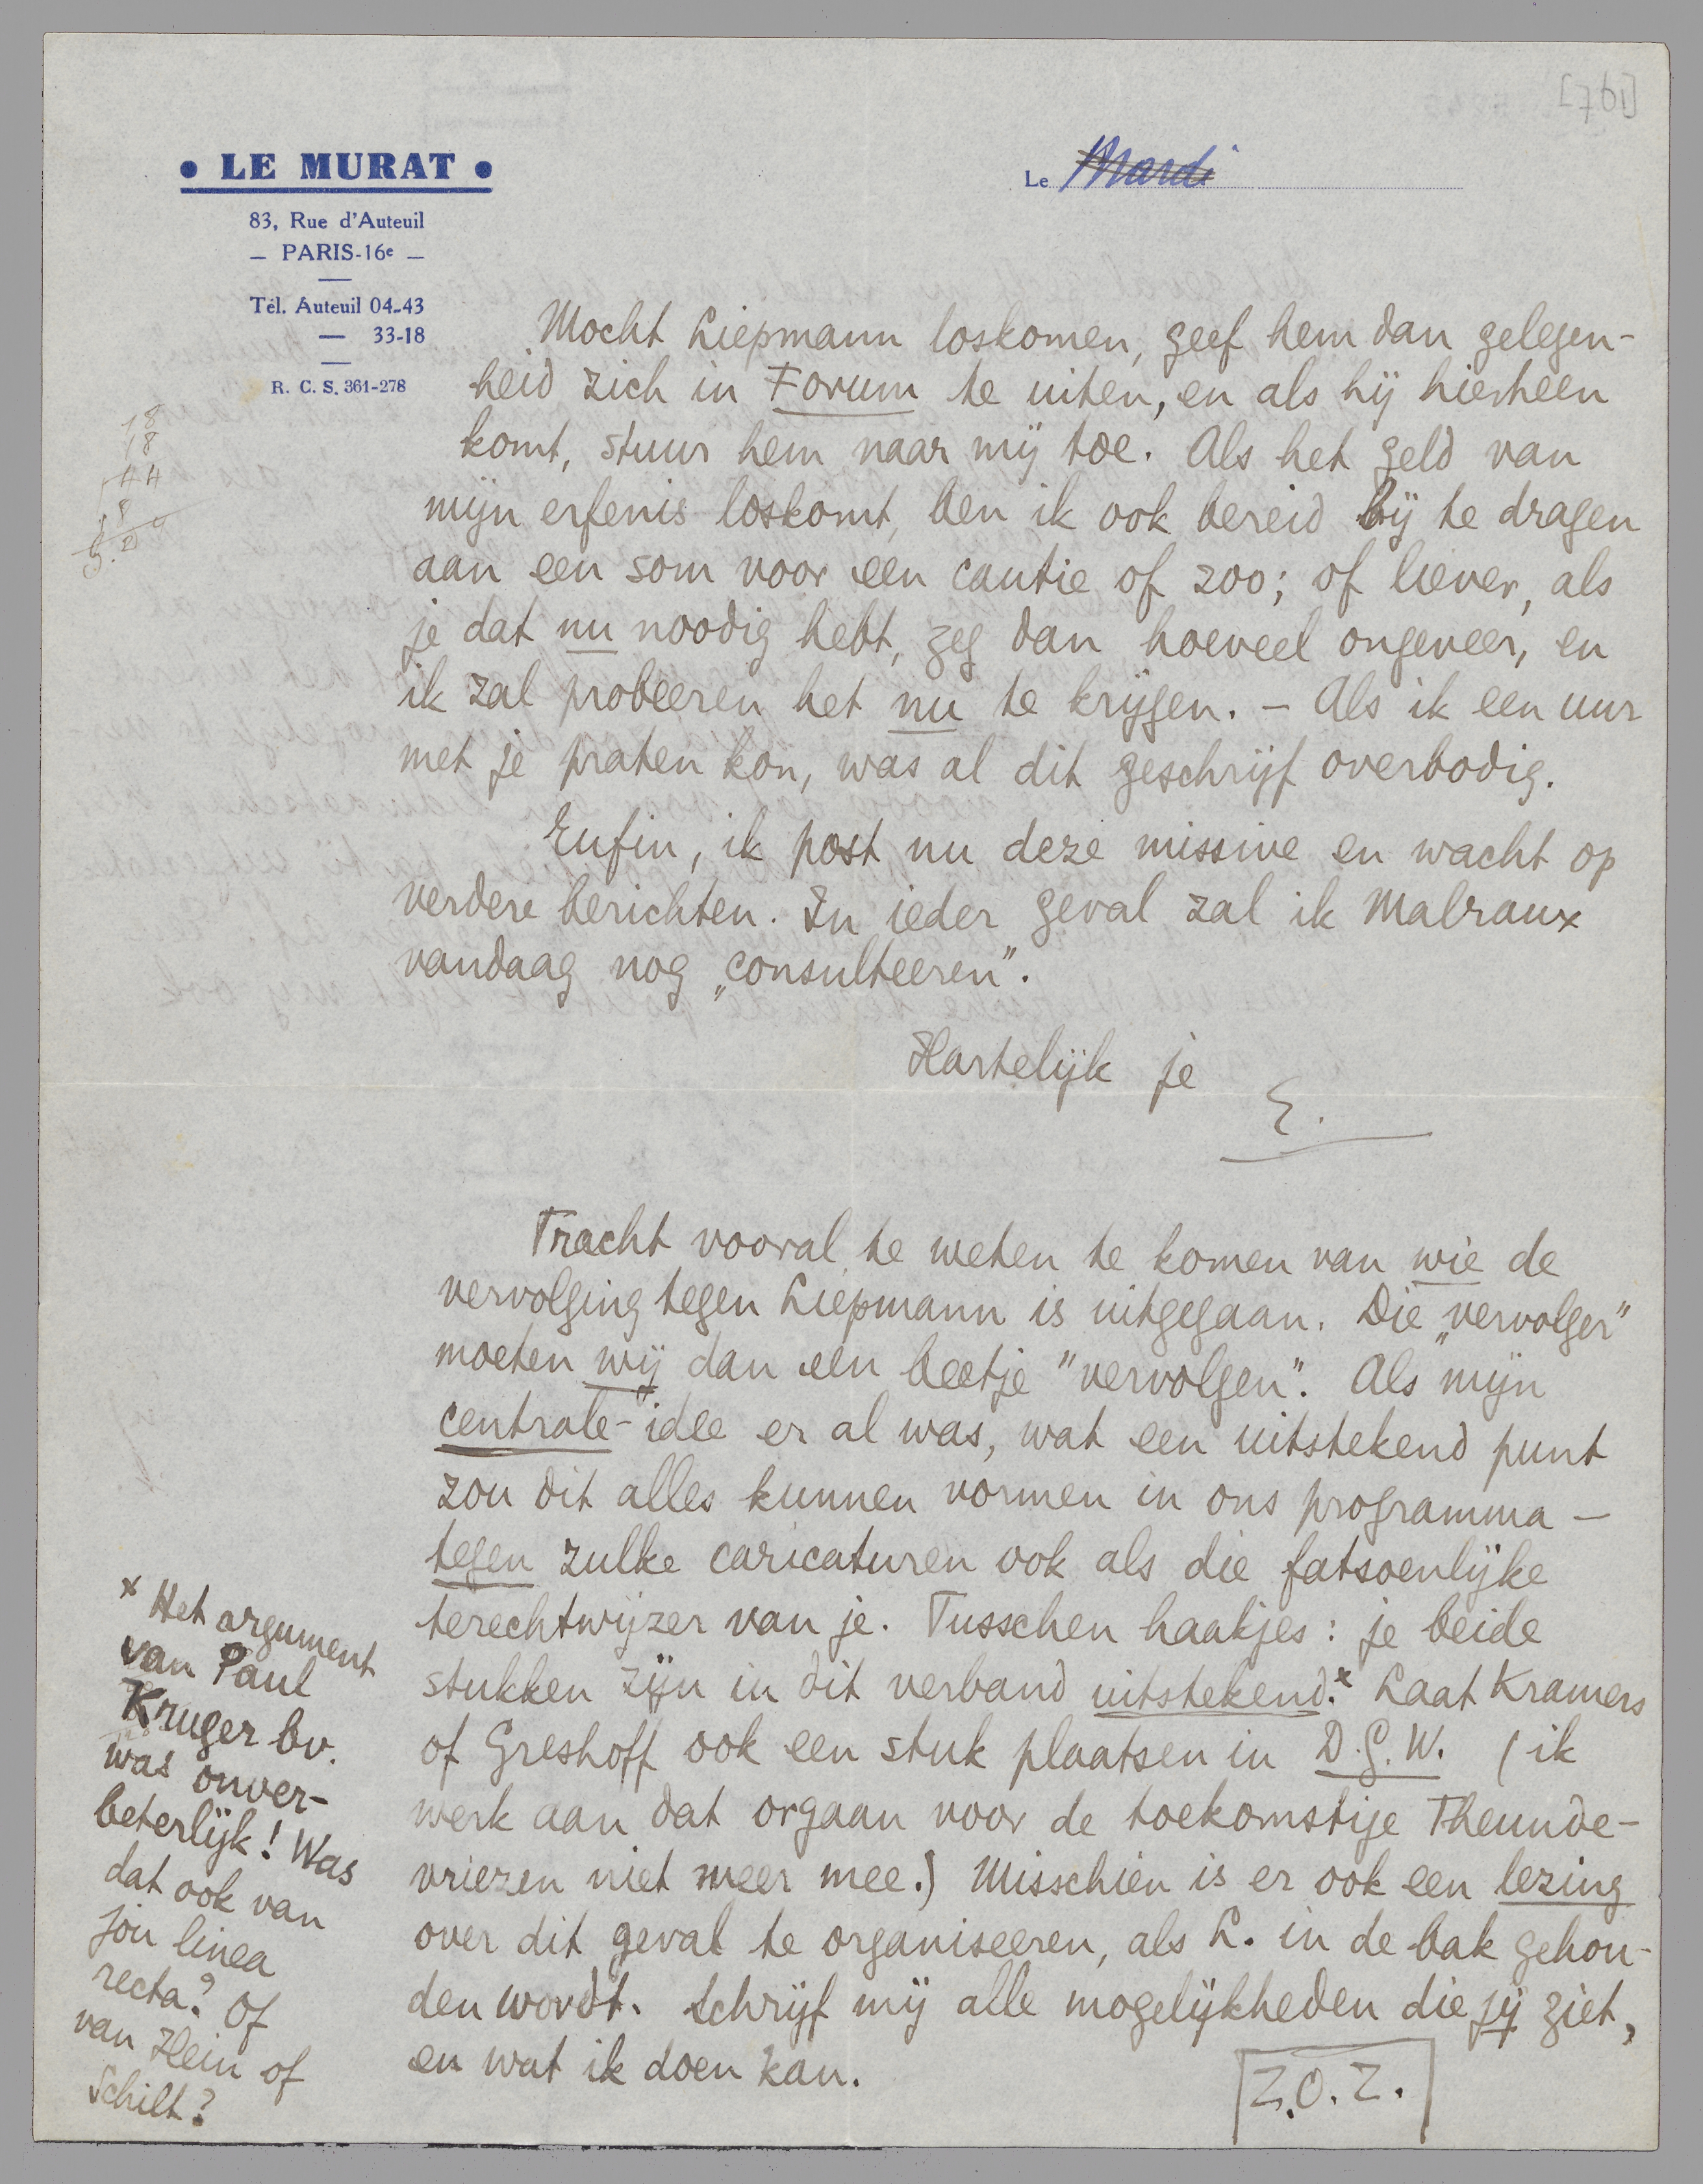 [761]
• LE MURAT •
83, Rue d'Auteuil
— PARIS-16e —
Tél. Auteuil 04-43
— 33-18
R. C. S. 361-278
Le Mardi
18
18
44
Mocht Liepmann loskomen, geef hem dan gelegen-
heid zich in Forum te uiten, en als hij hierheen
komt, stuur hem naar mij toe. Als het geld van
mijn erfenis loskomt, ben ik ook bereid bij te dragen
aan een som voor een cautie of zoo; of liever, als
je dat nu noodig hebt, zeg dan hoeveel ongeveer, en
ik zal probeeren het nu te krijgen. – Als ik een uur
met je praten kon, was al dit geschrijf overbodig.
Enfin, ik post nu deze missive en wacht op
verdere berichten. In ieder geval zal ik Malraux
vandaag nog „consulteeren".
Hartelijk je
E.
Tracht vooral te weten te komen van wie de
vervolging tegen Liepmann is uitgegaan. Die „vervolger"
moeten wij dan een beetje "vervolgen". Als mijn
centrale-idee er al was, wat een uitstekend punt
zou dit alles kunnen vormen in ons programma –
tegen zulke caricaturen ook als die fatsoenlijke
terechtwijzer van je. Tusschen haakjes: je beide
stukken zijn in dit verband uitstekend.* Laat Kramers
of Greshoff ook een stuk plaatsen in D.G.W. (ik
werk aan dat orgaan voor de toekomstige Theunde-
vriezen niet meer mee.) Misschien is er ook een lezing
over dit geval te organiseeren, als L. in de bak gehou-
den wordt. Schrijf mij alle mogelijkheden die jij ziet,
en wat ik doen kan.
Z.O.Z.
* Het argument
van Paul
Kruger bv.
was onver-
beterlijk! Was
dat ook van
jou linea
recta? Of
van Hein of
Schilt?